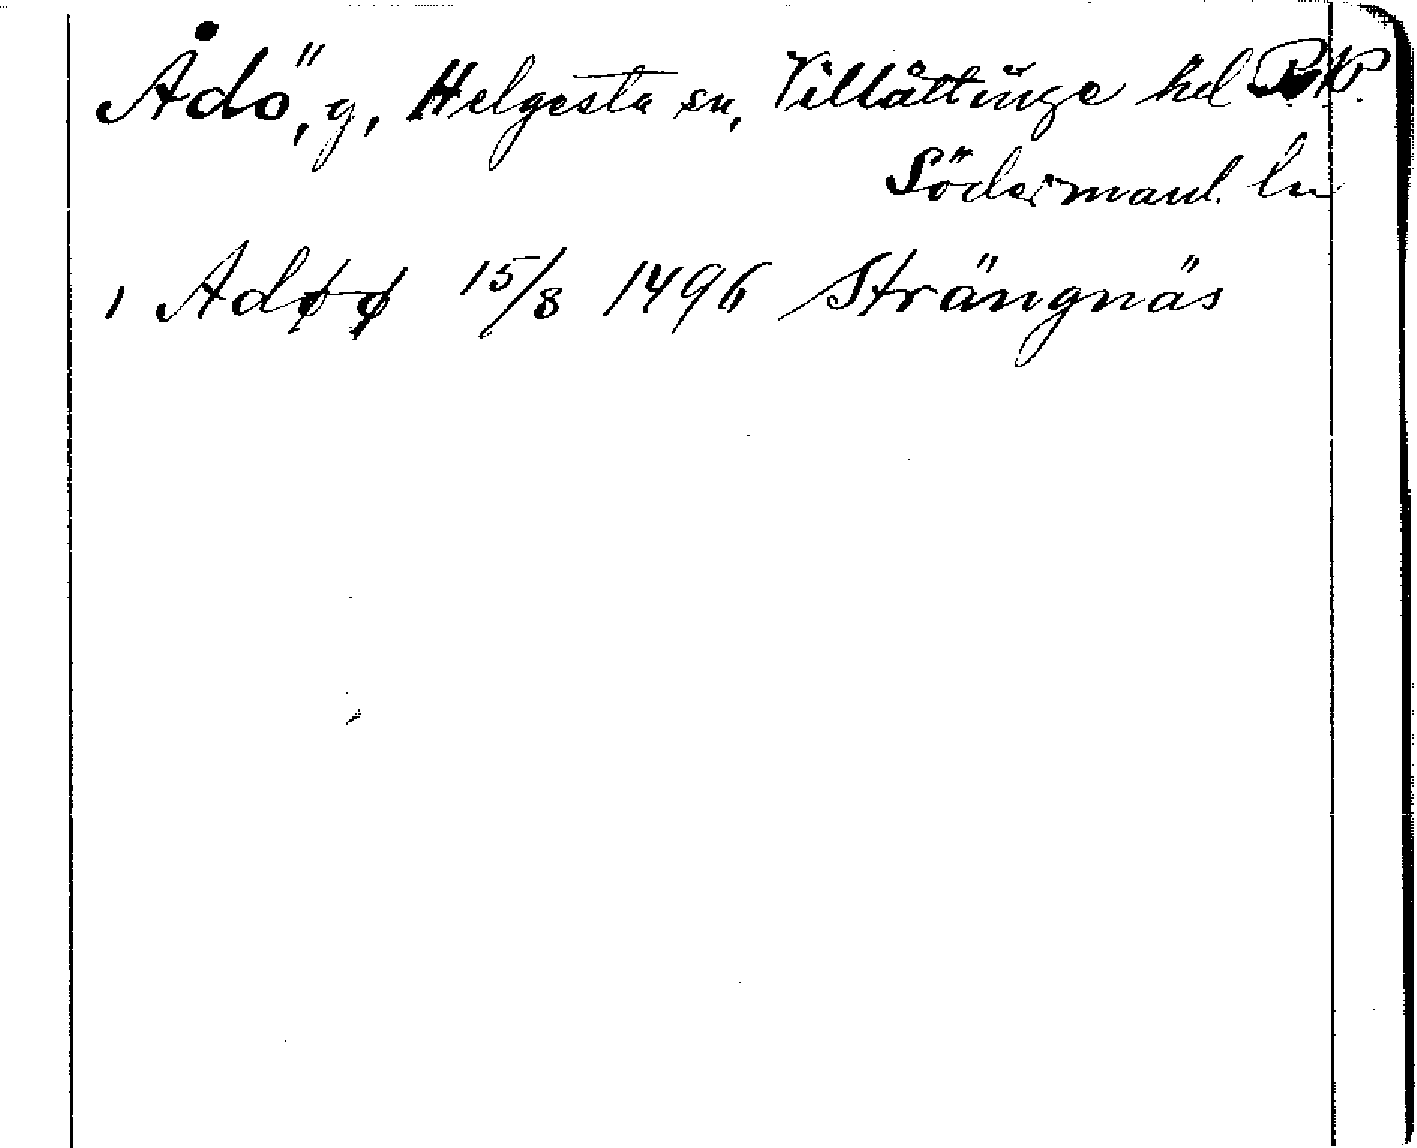 Ådö, g, Helgesta sn, Villåttinge hd
Södermanl. ln
1 Adøø 15/8 1496 Strängnäs